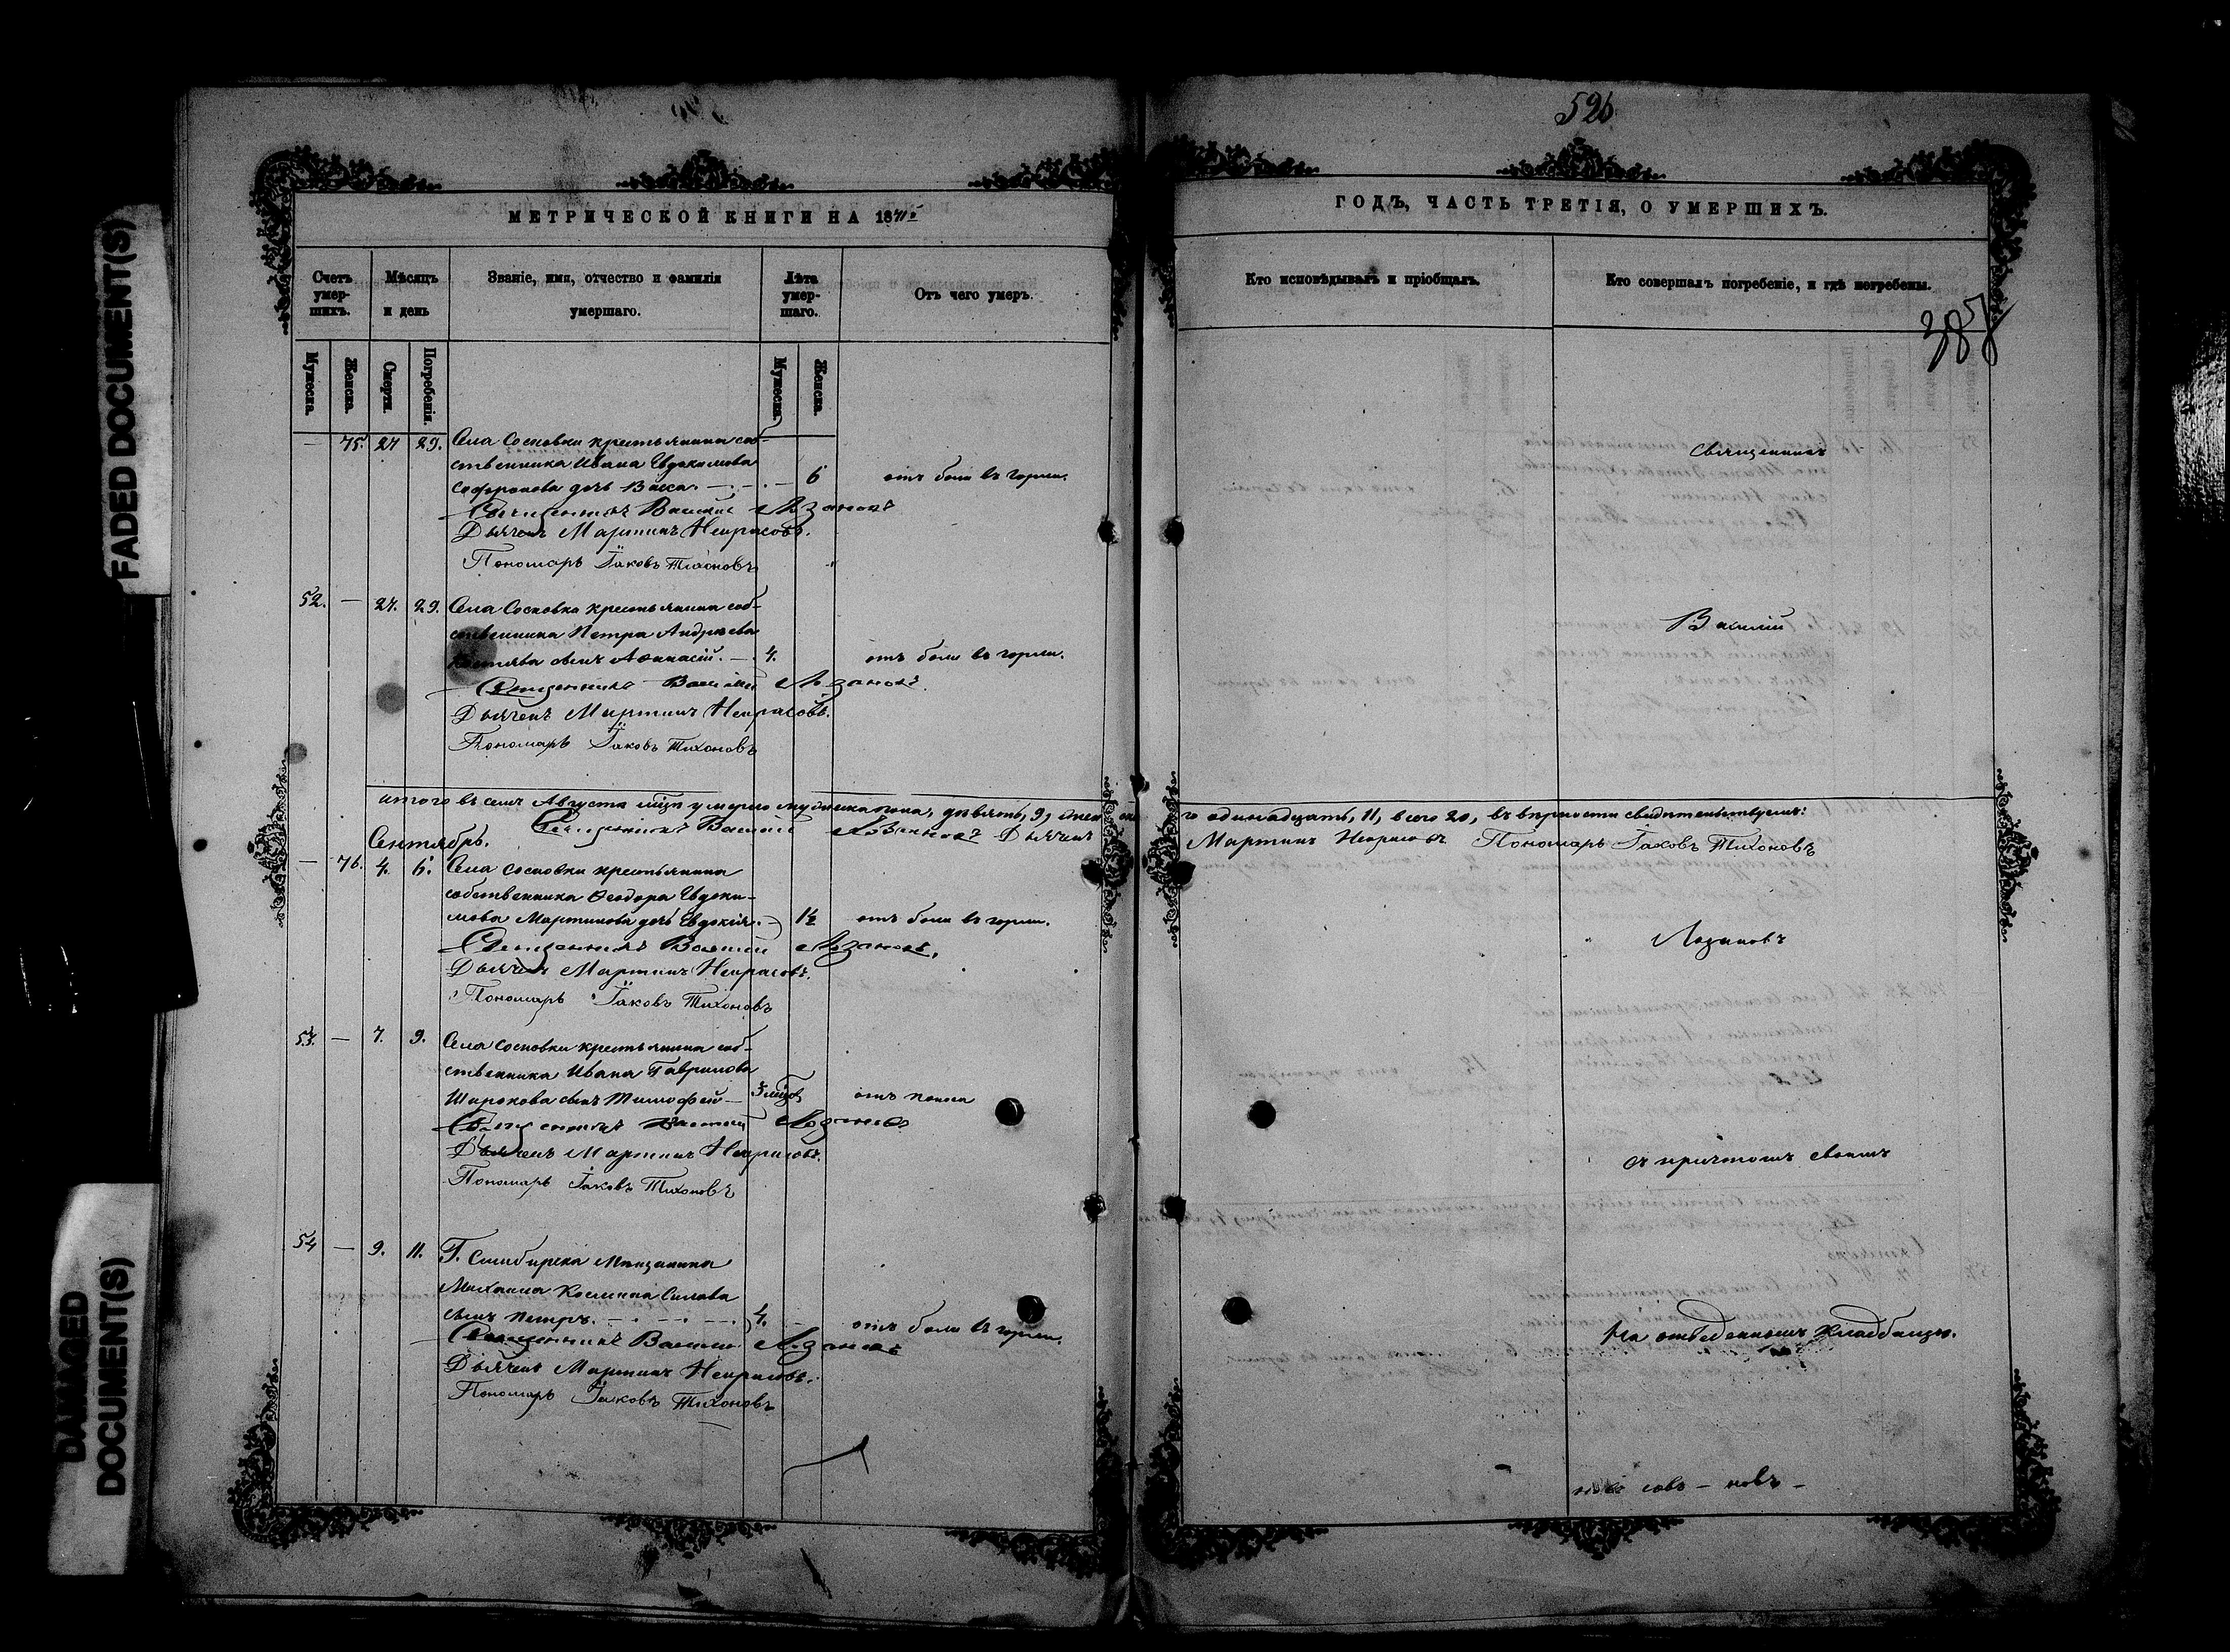 526
FADED DOCUMENT(S)
DAMAGED
DOCUMENT(S)
МЕТРИЧЕСКОЙ КНИГИ НА 18
Счетъ умер-шихъ.
Мѣсяцъ и день
Званіе, имя, отчество и фамилія умершаго.
Лѣта умер-шаго.
Отъ чего умеръ.
Мужеска.
Женска.
Смерти.
Погребенія.
Мужеска.
Женска.
— 75. 27 29. Села Сосновки крестьянина соб-
ственника Ивана Евдокимова
Софронова дочь Васса. — 6 отъ боли въ горлѣ.
Священникъ Василій Лозановъ
Дьячекъ Мартинъ Некрасовъ.
Пономарь Іаковъ Тихоновъ
52. — 27. 29. Села Сосновки крестьянина соб-
ственника Петра Андреева
сынъ Аѳанасій. — 4. отъ боли въ горлѣ.
Священникъ Василій Лозановъ.
Дьячекъ Мартинъ Некрасовъ.
Пономарь Іаковъ Тихоновъ
итого въ семъ Августа мцѣ умерло мужеска пола, девять, 9, женска
Священникъ Василій Лозановъ Дьячекъ
Сентябрь.
— 76. 4. 6. Села Сосновки крестьянина
собственника Ѳеодора Евдоки-
мова Мартинова дочь Евдокія. — 1½ отъ боли въ горлѣ.
Священникъ Василій Лозановъ.
Дьячекъ Мартинъ Некрасовъ.
Пономарь Іаковъ Тихоновъ
53. — 7. 9. Села Сосновки крестьянина соб-
ственника Ивана Гаврилова
Широкова сынъ Тимофей — 3 мцѣ отъ поноса
Священникъ Василій Лозановъ
Дьячекъ Мартинъ Некрасовъ.
Пономарь Іаковъ Тихоновъ
54 — 9. 11. Г. Симбирска Мѣщанина
Михаила Косьмина Силова
сынъ Петръ. — 4. отъ боли въ горлѣ.
Священникъ Василій Лозановъ
Дьячекъ Мартинъ Некрасовъ.
Пономарь Іаковъ Тихоновъ
ГОДЪ, ЧАСТЬ ТРЕТІЯ, О УМЕРШИХЪ.
Кто исповѣдывалъ и пріобщалъ.
Кто совершалъ погребеніе, и гдѣ погребены.
Священникъ
Василій
го одинадцать, 11, всего 20, въ вѣрности свидѣтельствуемъ:
Мартинъ Некрасовъ Пономарь Іаковъ Тихоновъ
Лозановъ
съ причтомъ своимъ
На отведенномъ кладбищѣ.